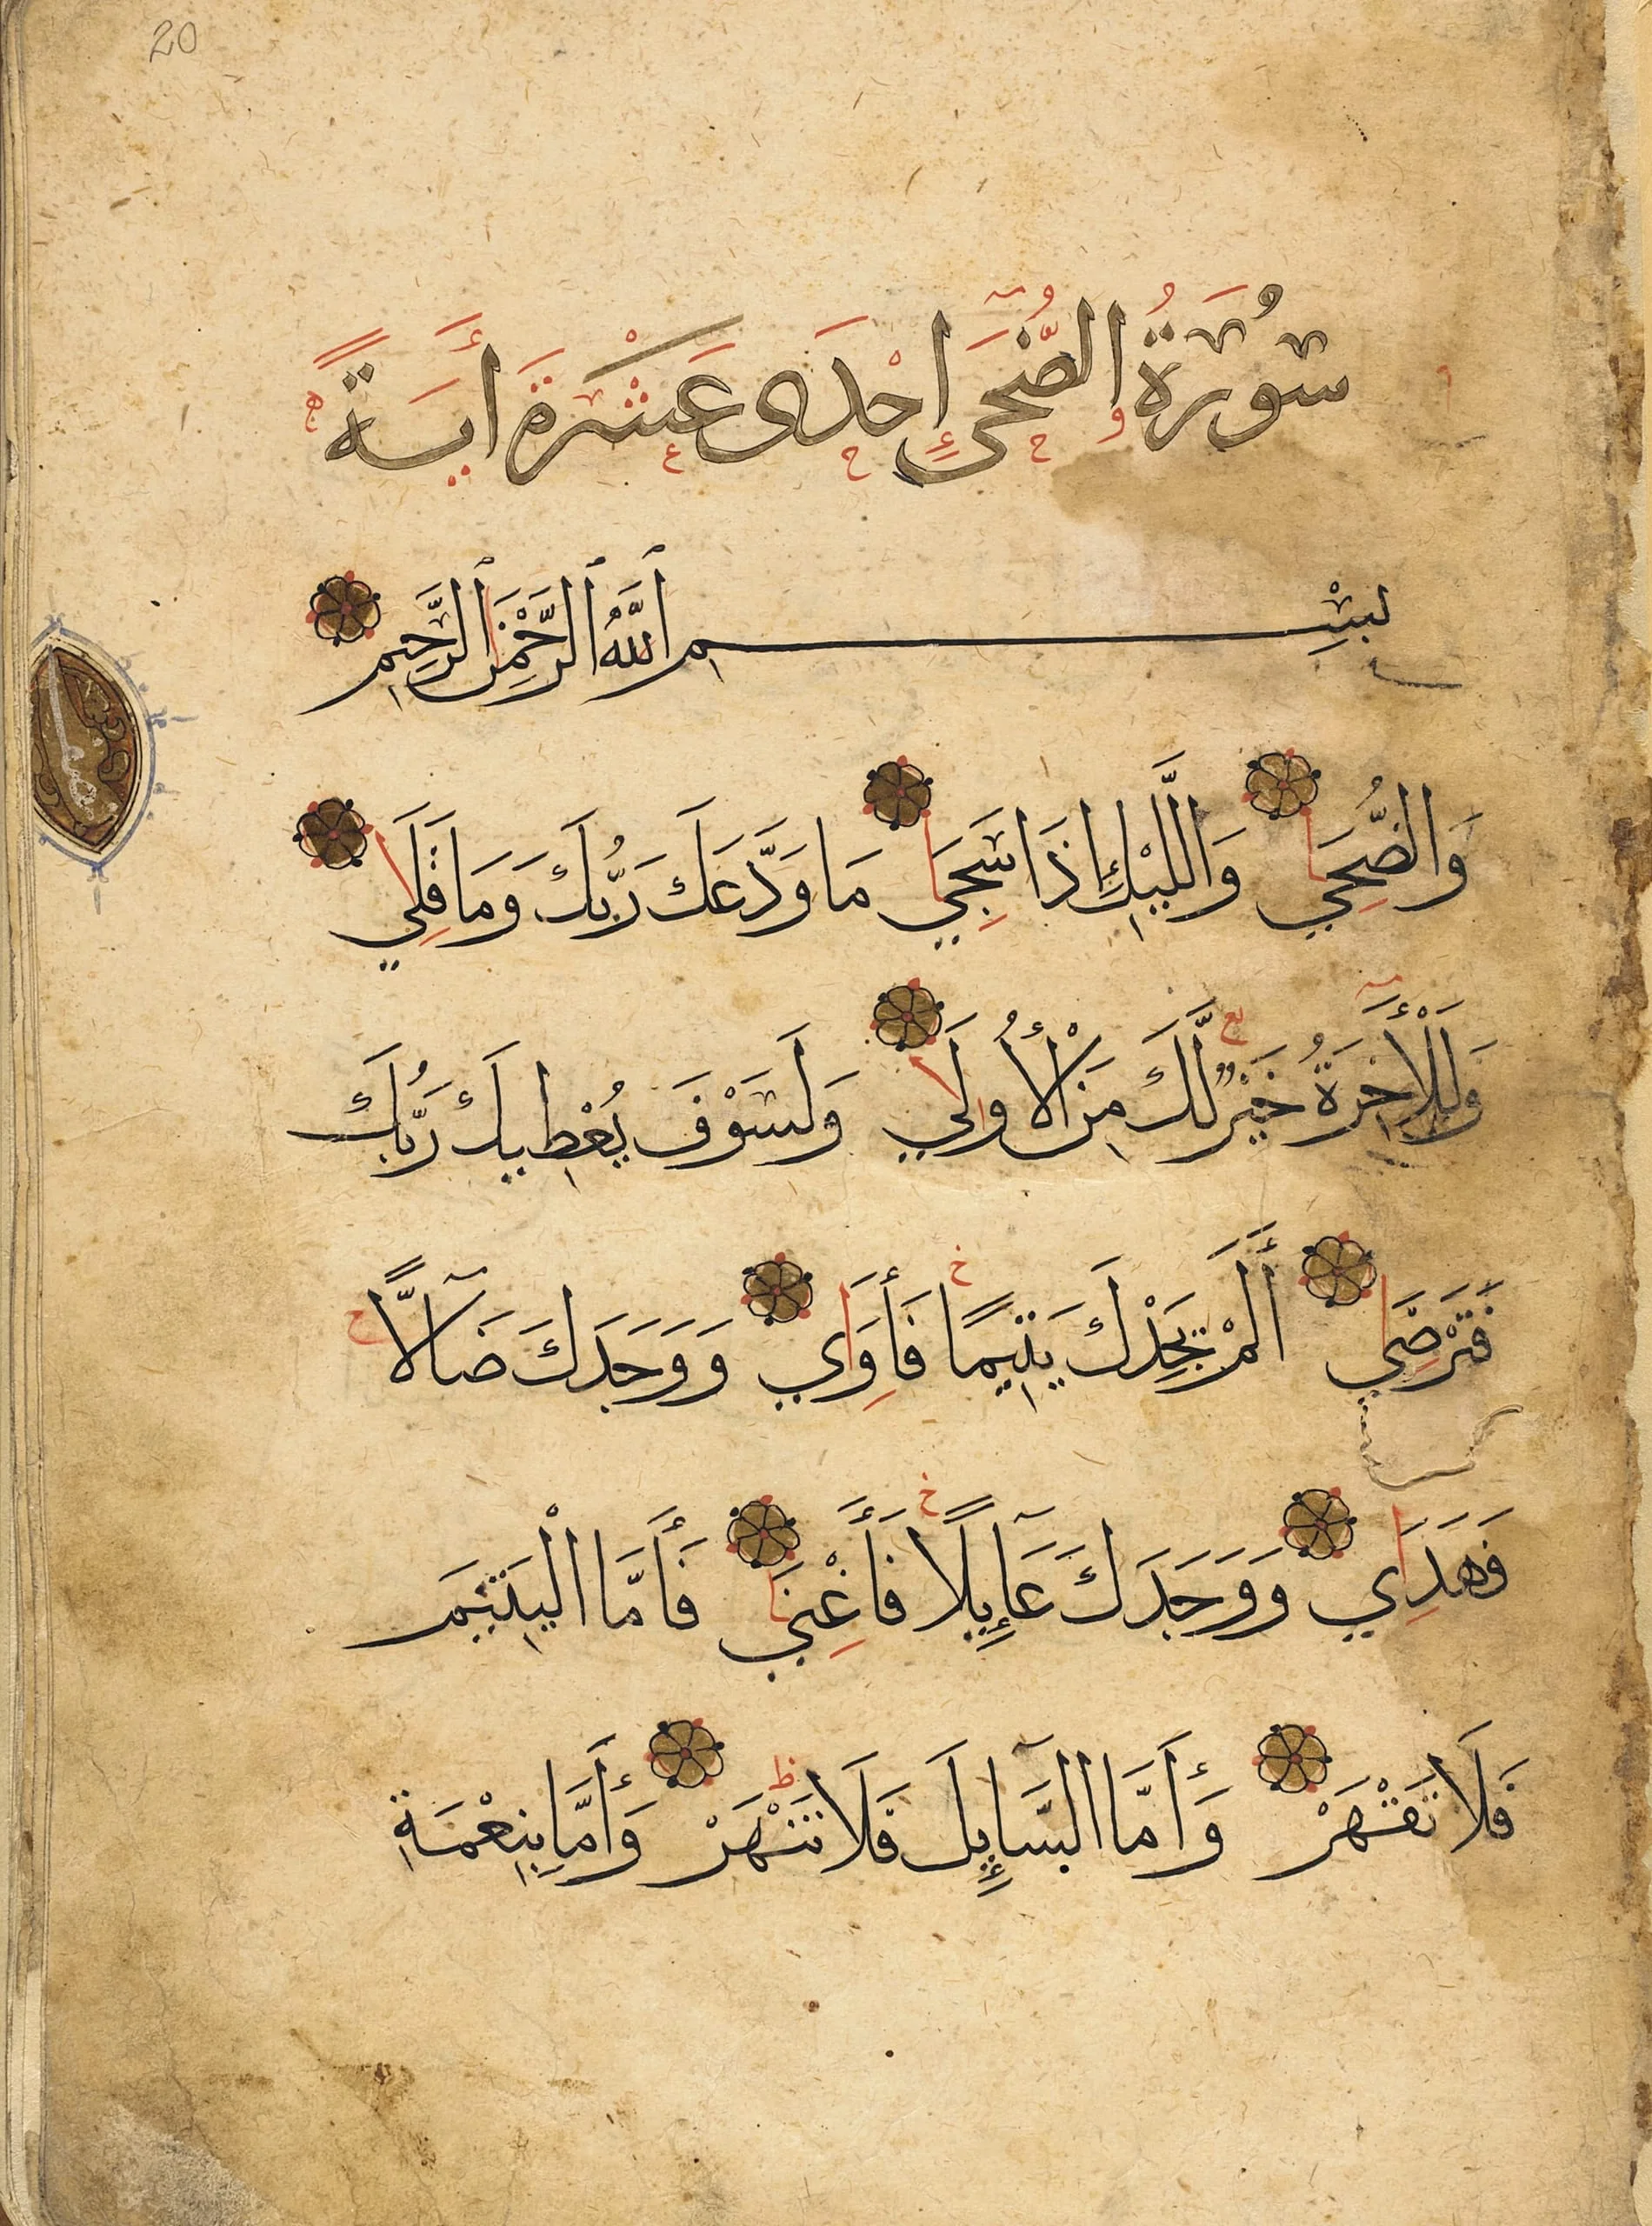 20
سُورَةُ الضُّحَى إِحْدَى عَشْرَةَ أَيَةً
بِسْمِ اللَّهِ الرَّحْمَنِ الرَّحِيمِ
وَالضُّحَي وَاللَّيْلِ إِذَا سَجَي مَا وَدَّعَكَ رَبُّكَ وَمَا قَلَي
وَلَلْأَخِرَةُ خَيْرٌ لَّكَ مِنَ الْأُولَي وَلَسَوْفَ يُعْطِيكَ رَبُّكَ
فَتَرْضَي أَلَمْ يَجِدْكَ يَتِيمًا فَأَوَاي وَوَجَدَكَ ضَآلًّا
فَهَدَاي وَوَجَدَكَ عَآئِلًا فَأَغْنَي فَأَمَّا الْيَتِيمَ
فَلَا تَقْهَرْ وَأَمَّا السَّآئِلَ فَلَا تَنْهَرْ وَأَمَّا بِنِعْمَةِ